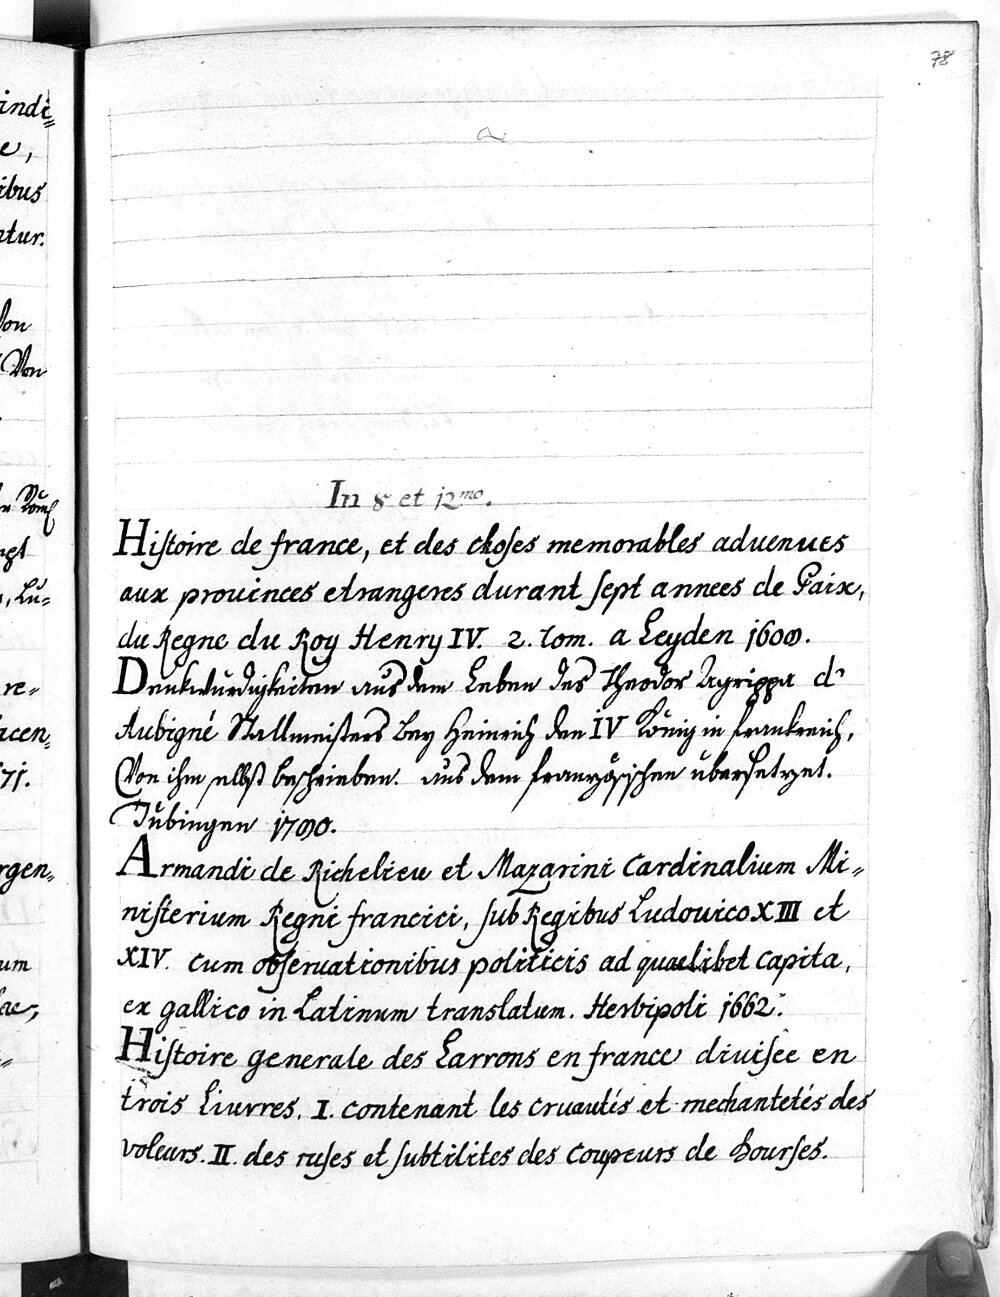 78
indi=
e,
ibus
atur.
Von
Von
re=
acen=
71.
rgen=
um
lae,
In 8 et 12mo.
Histoire de france, et des choses memorables aduenues
aux prouinces etrangeres durant sept annees de Paix,
du Regne du Roy Henry IV. 2. Tom. a Leyden 1609.
Denkwürdigkeiten aus dem Leben des Theodor Agrippa d'
Aubigné Stallmeisters bey Heinrich den IV König in frankreich,
Von ihm selbst beschrieben. aus dem französischen übersetzet.
Tübingen 1790.
Armandi de Richelieu et Mazarini Cardinalium Mi=
nisterium Regni francici, sub Regibus Ludouico XIII et
XIV. cum obseruationibus politicis ad quaelibet capita,
ex gallico in Latinum translatum. Herbipoli 1662.
Histoire generale des Larrons en france diuisee en
trois Liuvres. I. contenant les cruautés et mechantetés des
voleurs. II. des ruses et subtilites des coupeurs de bourses.